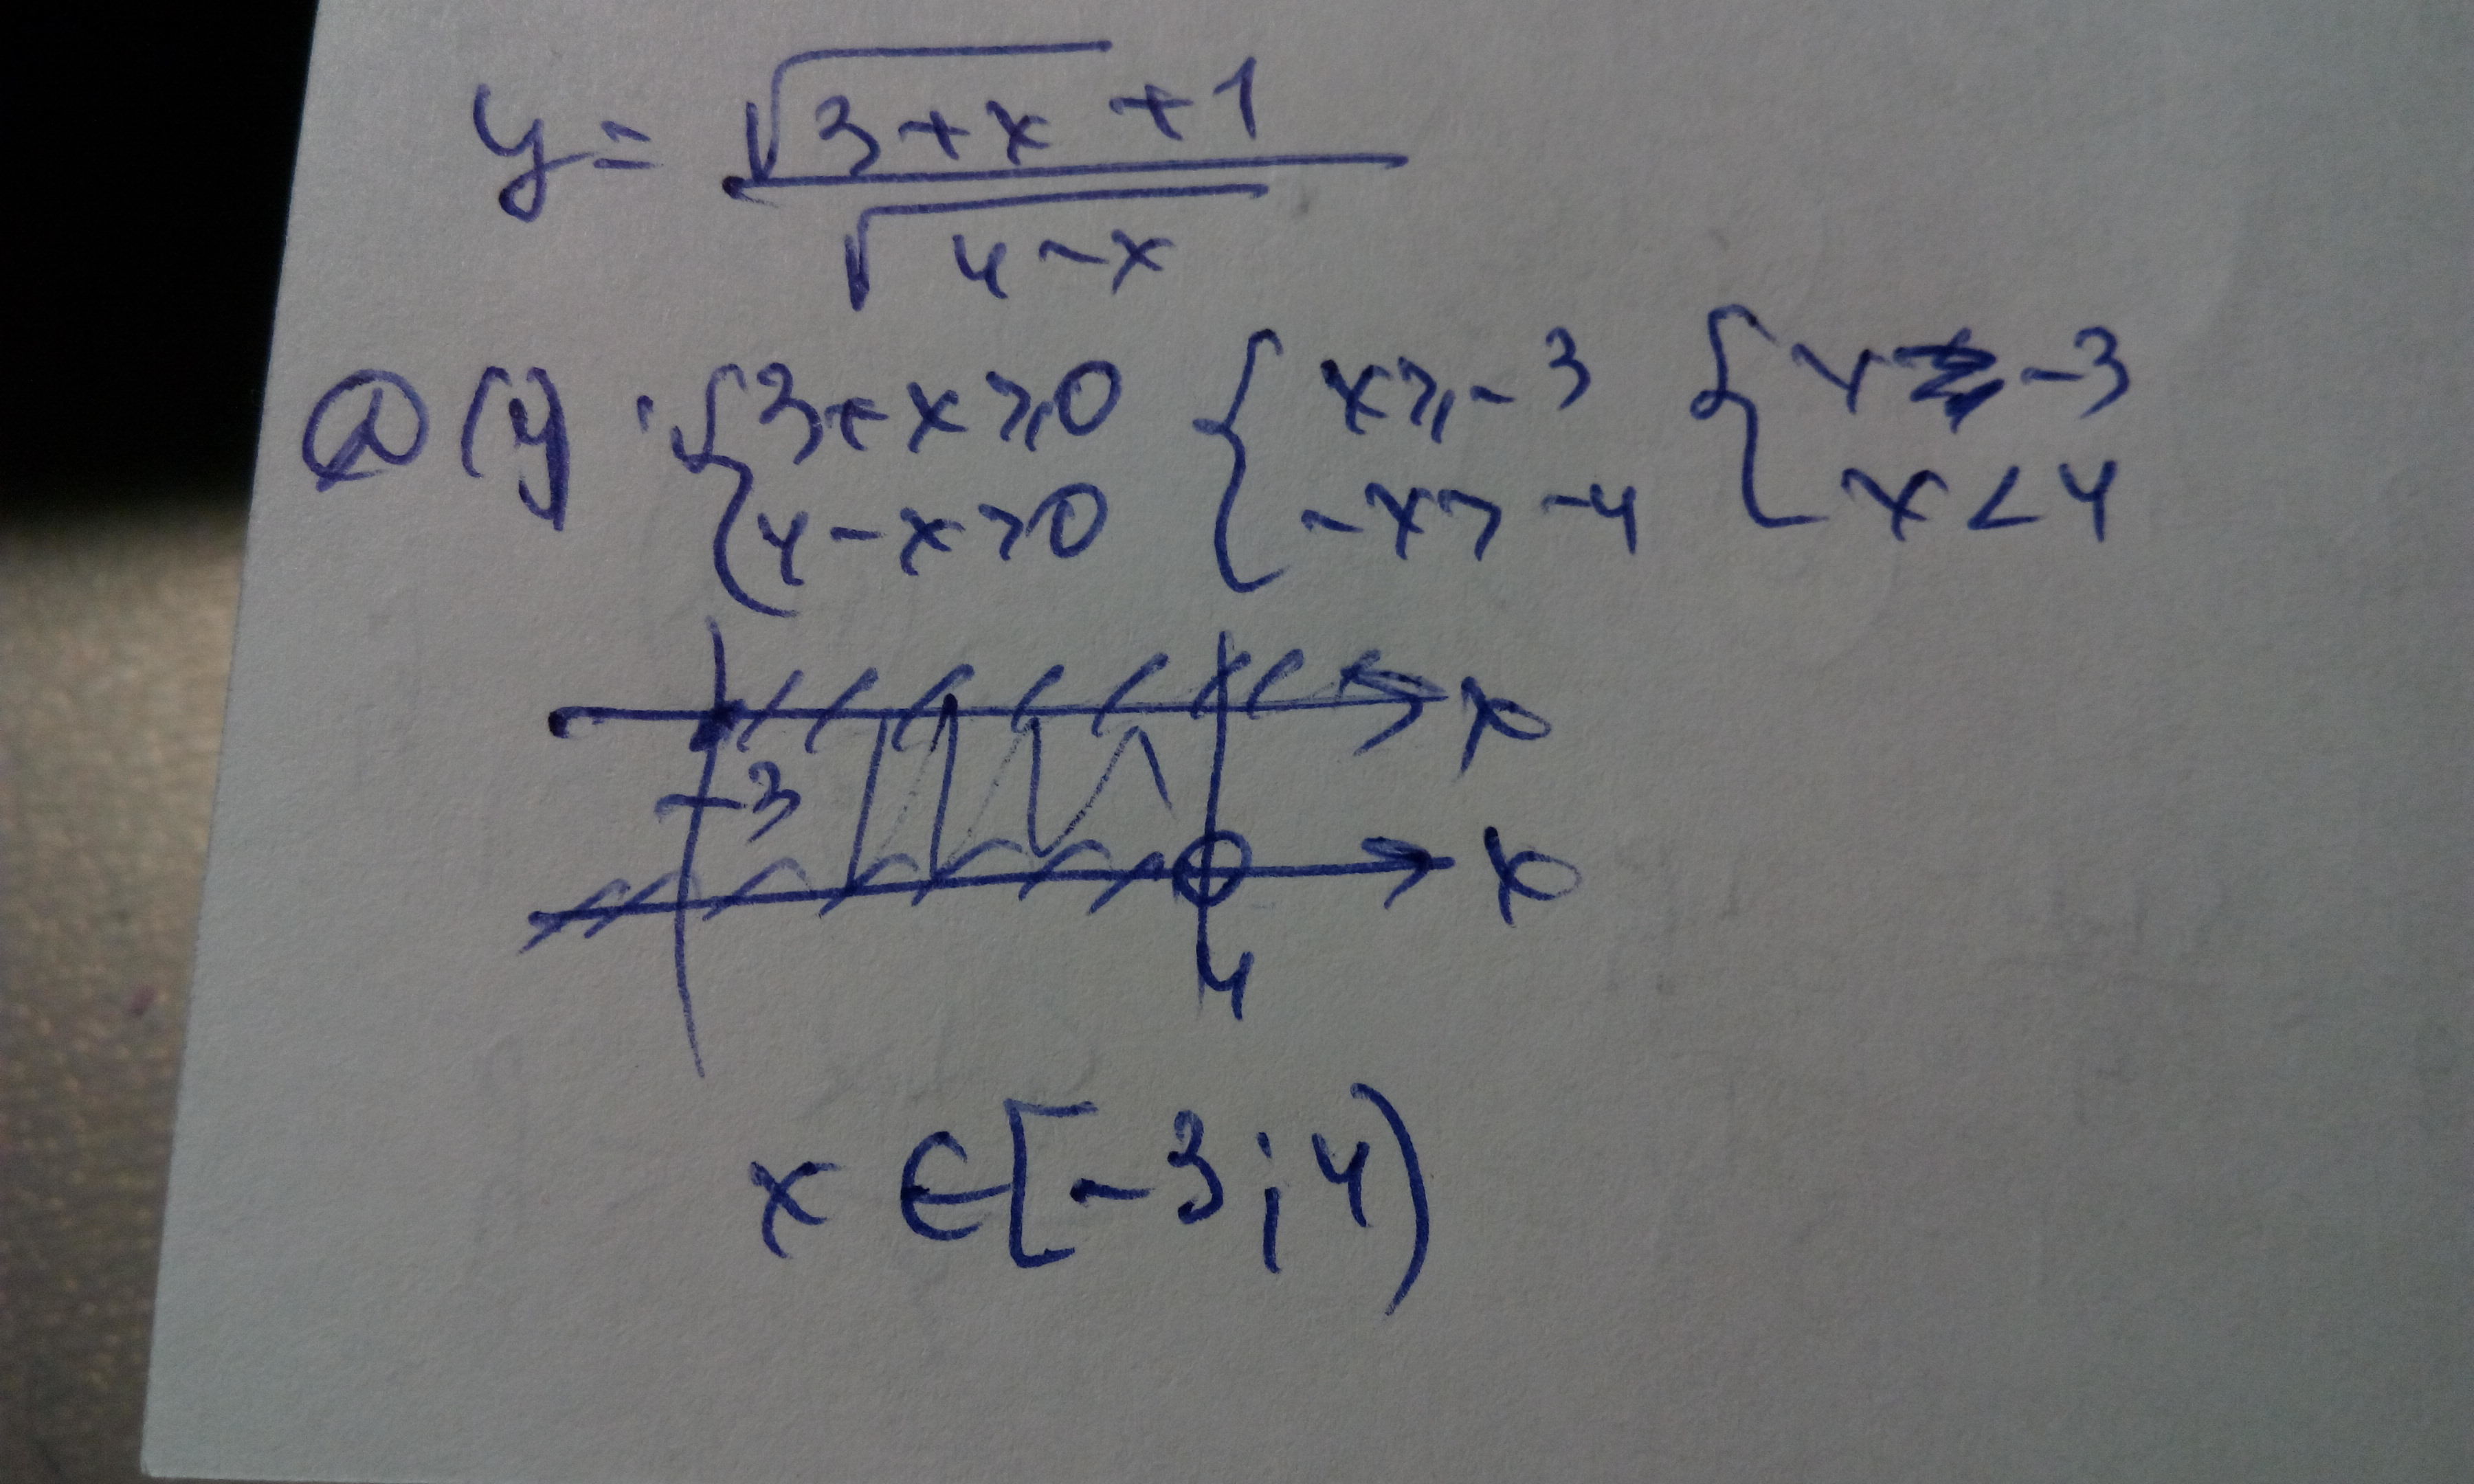 y = (√(3+x) + 1) / √(4-x)
D(y): { 3+x ≥ 0 { x ≥ -3 { x ≥ -3
{ 4-x > 0 { -x > -4 { x < 4
x
-3
x
4
x ∈ [-3; 4)